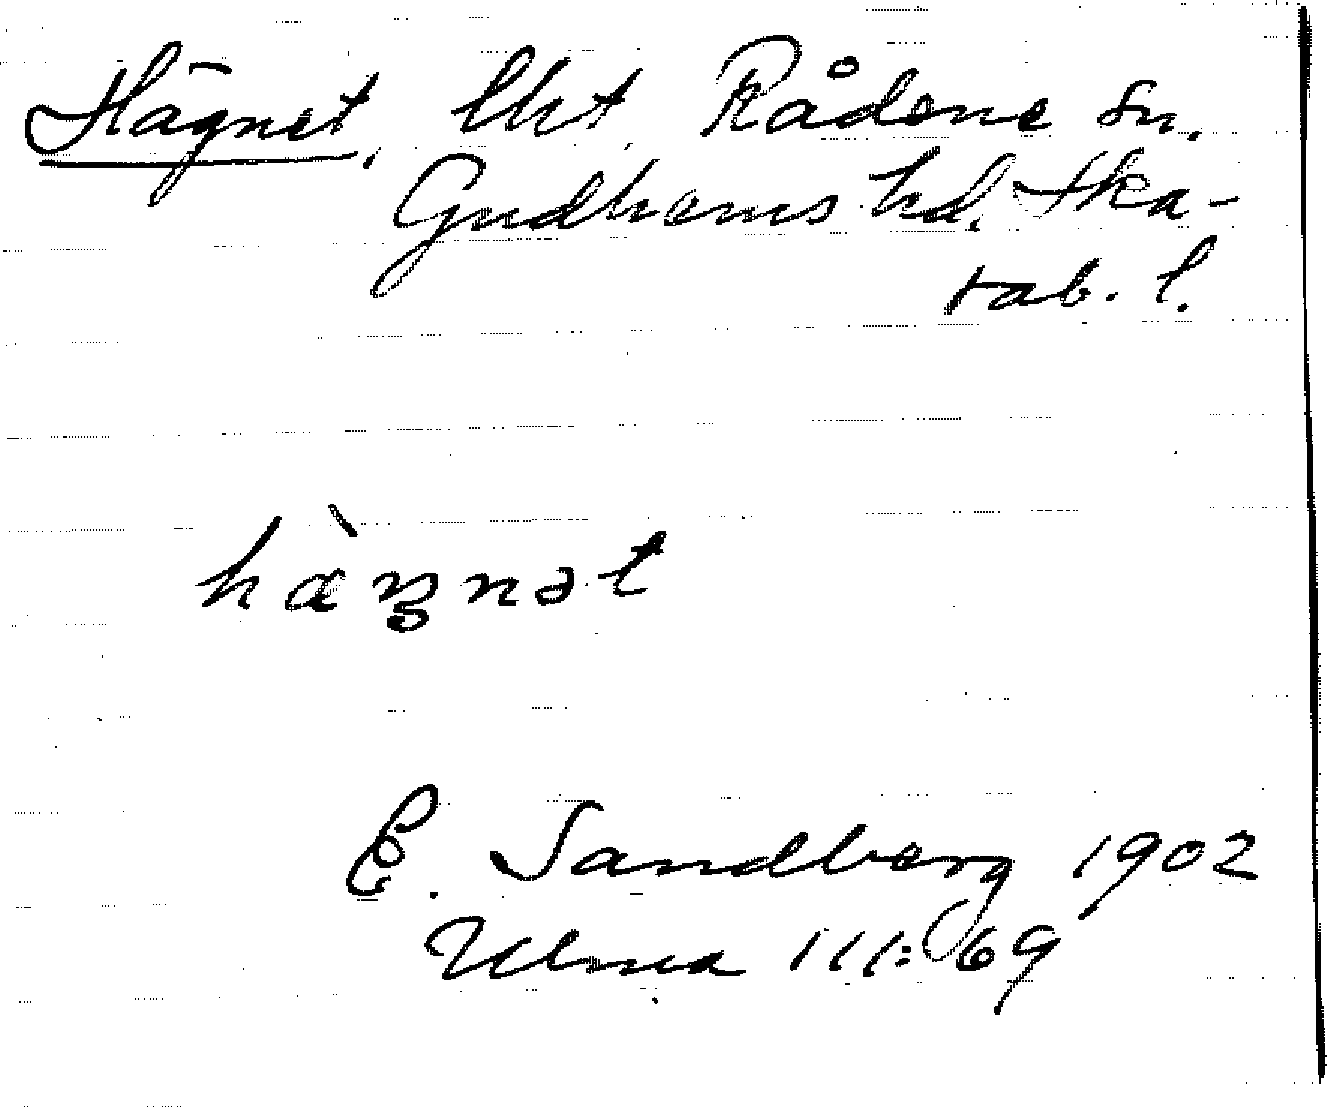 Hägnet, lht Rådene sn.
Gudhems hd. Ska-
rab. l.
hàŋnət
E. Sandberg 1902
Ulma 111:69